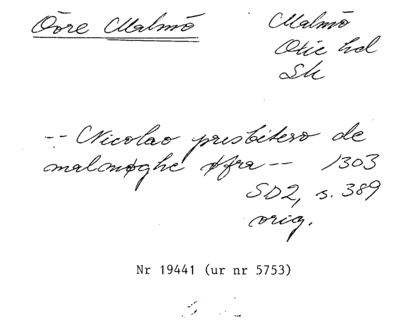 Övre Malmö
Malmö
Oxie hd
Sk
-- Nicolao presbitero de
malmøghe øfra -- 1303
SD2, s. 389
orig.
Nr 19441 (ur nr 5753)